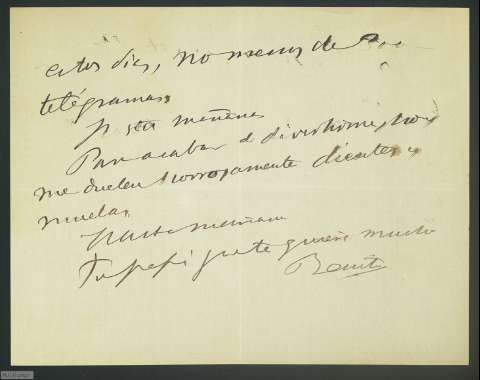 estos días, no menos de 200
telégramas
Para acabar de divertirme, hoy
me duelen horrorosamente dientes y
muelas
Hasta mañana
Tu que te quiere mucho
Benito